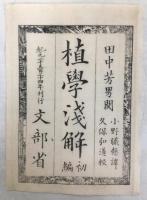 田中芳男閲
小野職愨譯
久保弘道校
植學淺解
初編
紀元二千五百三十四年刊行
文部省